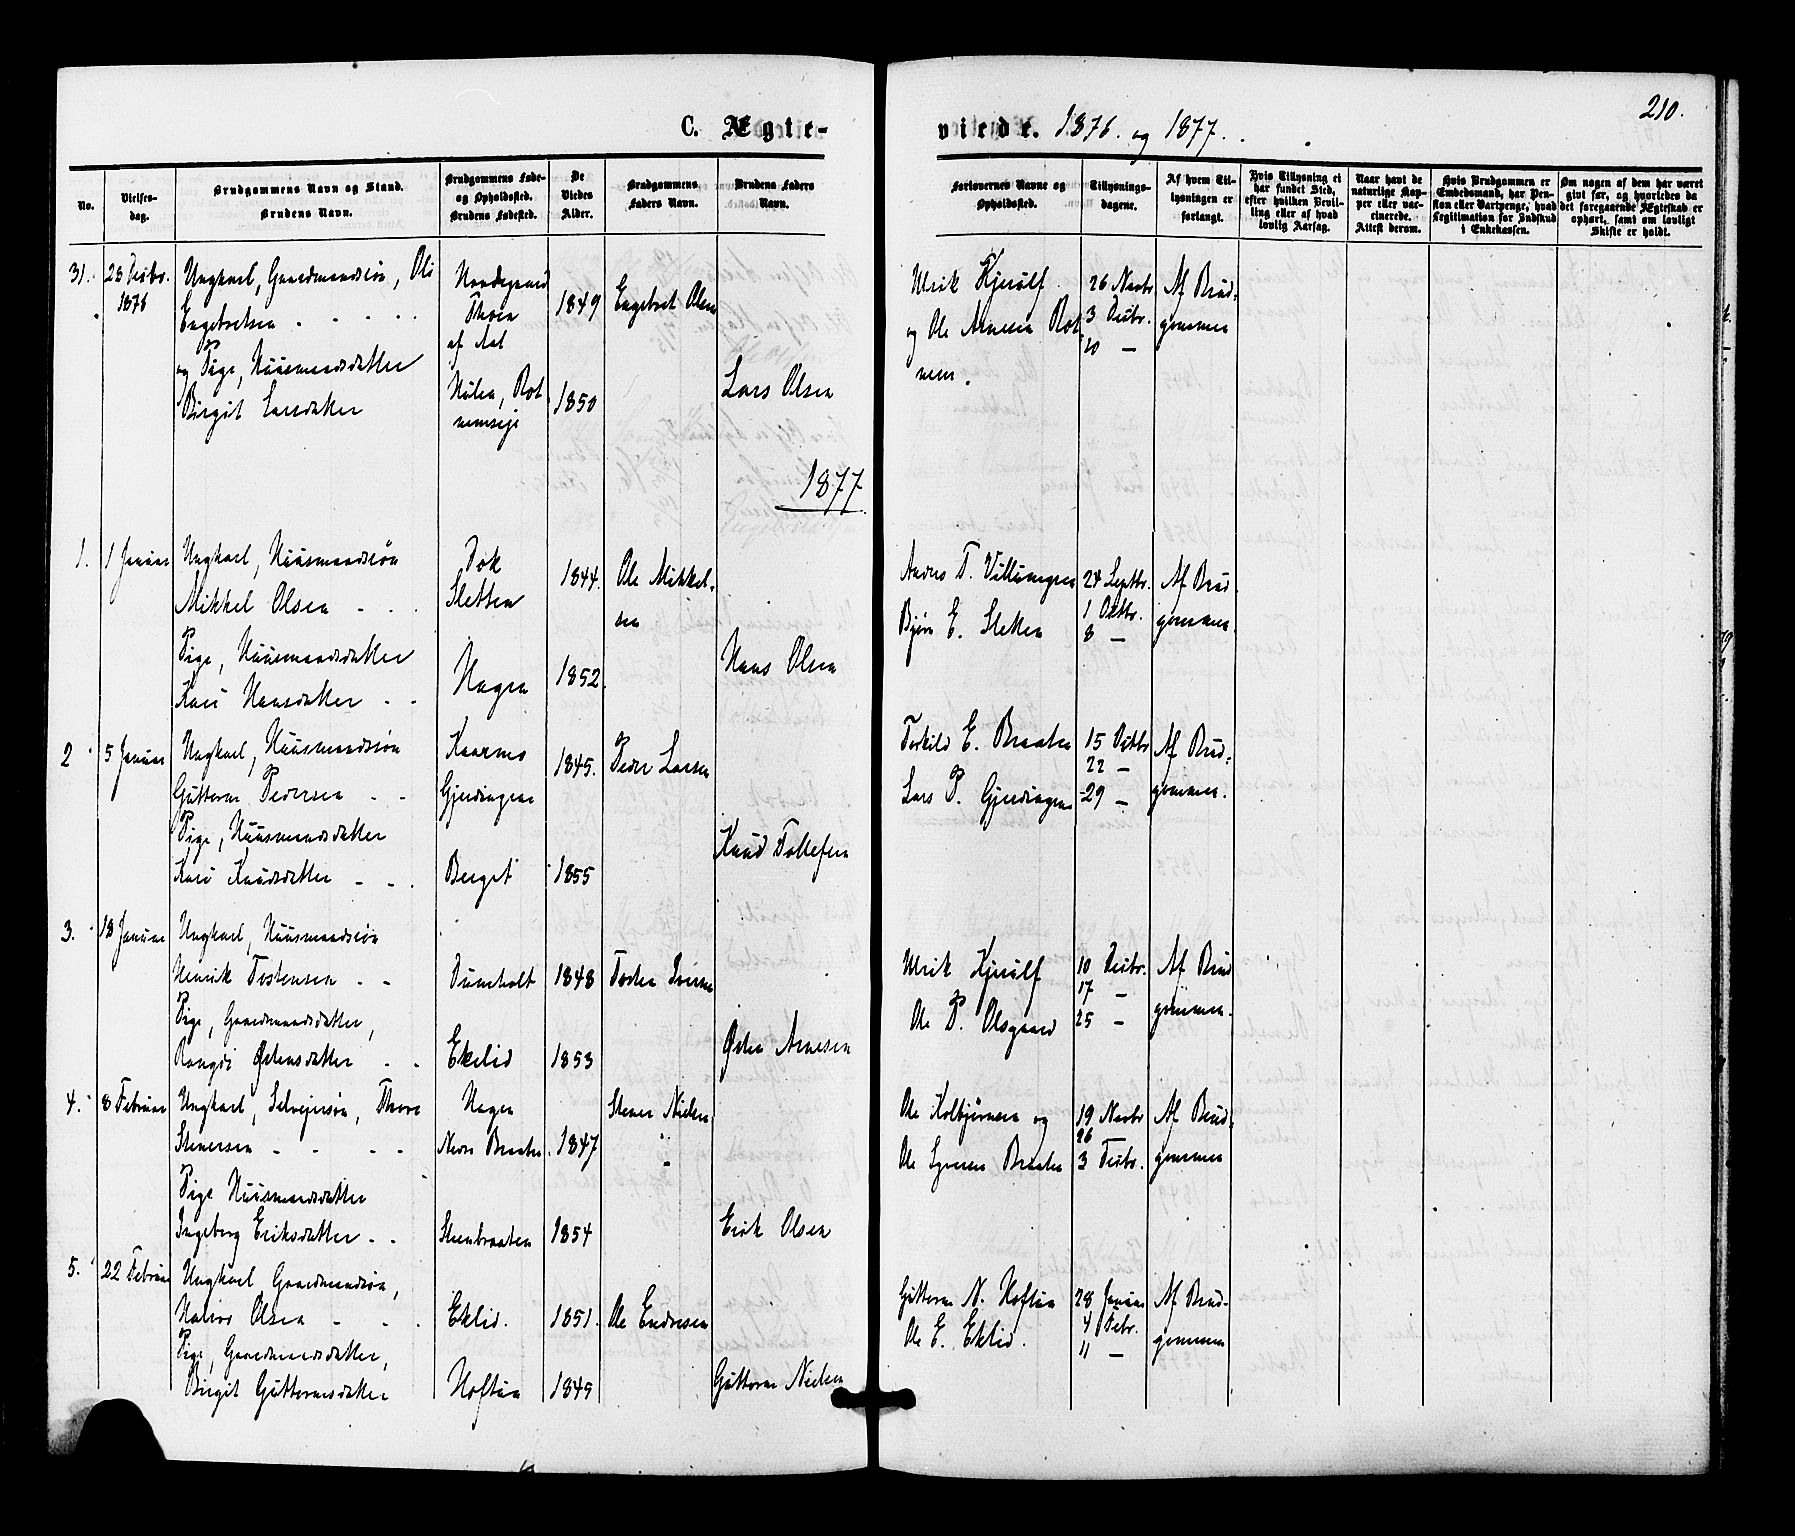 C. Ægte-
viede. 1876. og 1877.
210.
No.
Vielses-
dag.
Brudgommens Navn og Stand.
Brudens Navn.
Brudgommens Føde-
og Opholdssted.
Brudens Fødested.
De
Viedes
Alder.
Brudgommens
Faders Navn.
Brudens Faders
Navn.
Forlovernes Navne og
Opholdssted.
Tillysnings-
dagene.
Af hvem Til-
lysningen er
forlangt.
Hvis Tillysning ei
har fundet Sted,
efter hvilken Bevil-
ling eller af hvad
lovlig Aarsag.
Naar havt de
naturlige Kop-
per eller vac-
cinerede.
Attest derom.
Hvis Brudgommen er
Embedsmand, har Pen-
sion eller Vartpenge, hvad
Legitimation for Indskud
i Enkekassen.
Om nogen af dem har været
gift før, og hvorledes da
det foregaaende Ægteskab er
ophørt, samt om lovligt
Skifte er holdt.
31.
28 Decbr.
1876
Ungkarl, Gaardmandssøn, Ole
Engebretsen
og Pige, Huusmandsdatter
Birgit Larsdatter
Thoen
af Aal
Rot
nemseje
1849
1850
Engebret Olsen
Lars Olsen
Ulrik Kjerulf
og Ole Arnesen Rot
nem.
26 Novbr
3 Decbr.
10 —
Af Brud-
gommen
1877
1.
1 Januar
Ungkarl, Huusmandssøn
Mikkel Olsen
Pige, Huusmandsdatter
Kari Hansdatter
Dok
Sletten
Hagen
1844.
1852
Ole Mikkel-
sen
Hans Olsen
Andres T. Villungen
Bjørn E. Sletten
24 Septbr.
1 Octbr.
8 —
Af Brud-
gommen.
2
5 Januar
Ungkarl, Huusmandssøn
Guttorm Pedersen
Pige, Huusmandsdatter
Kari Knudsdatter
Gjerdingen
Berget
1845.
1855
Peder Larsen
Knud Tollefsen
Torkild E. Braaten
Lars P. Gjerdingen
15 Octbr
22 —
29 —
Af Brud-
gommen.
3.
18 Januar
Ungkarl, Huusmandssøn
Henrik Tostensen
Pige, Gaardmandsdatter,
Rangdi Østensdatter
Ekelid
1848
1853
Tosten Iversen
Østen Arnesen
Ulrik Kjerulf
Ole P. Olsgaard
10 Decbr.
17 —
25 —
Af Brud
gommen.
4.
8 Februar
Ungkarl, Selvejersøn, Thore
Stenersen
Pige Huusmandsdatter
Ingeborg Eriksdatter
Hagen
Nedre Braaten
Steenbraaten
1847
1854
Stener Nielsen
Erik Olsen
Ole Kolbjørnsen og
Ole Syversen Braaten
19 Novbr
26
3 Decbr.
Af Brud-
gommen
5.
22 Februar
Ungkarl Gaardmandssøn,
Halvor Olsen
Pige, Gaardmandsdatter,
Birgit Guttormsdatter
Eklid.
Hoftun
1851.
1849
Ole Endresen
Guttorm Nielsen
Guttorm N. Hoftun
Ole E. Eklid.
28 Januar
4 Febr.
11 —
Af Brud-
gommen